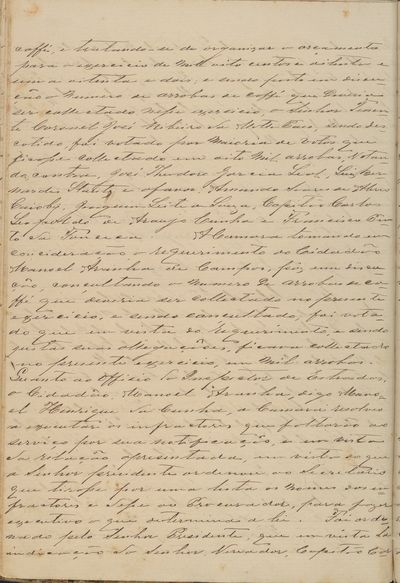 caffé, e tractando-se de organizar o orçamento
para o exercicio de Mill oito centos e oitenta e
um a oitenta e dois, e sendo posto em discus
são o numero de arrobas de caffé que deveria
ser collectado nesse exercicio, o Senhor Tenen
te Coronel José Ribeiro da Motta Paes, sendo des
cutido, foi votado por maioria de votos que
fosse collectado em oito mil arrobas, votan
do contra, José Theodoro Garcia Leal,
Joaquim Leite de Souza, Capitão Carlos
Leopoldo de Araujo Cunha e Francisco Pin
to da Fonseca. A Camara tomando em
consideração o requerimento do Cidadão
Manoel Aranha de Campos, foi em discus
são, consultando o numero de arrobas de ca
ffé que deveria ser collectado no presente
exercicio, e sendo consultado, foi vota
do que em vista do requerimento, e sendo
justas suas allegações, ficava collectado
no presente exercicio, em Mil arrobas.
Quanto ao Officio do Inspector de Estradas,
o Cidadão Manoel Aranha, digo Mano-
el Henrique da Cunha, a Camara resolveu
a executar os infractores que faltarão ao
serviço por sua notificação, e em vista
da relação apresentada, em vista do que
o Senhor presidente ordenou ao Secretario
que tirasse por uma lista os nomes dos in
fractores e desse ao Procurador, para fazer
executivo o que determina a lei. Foi orde
nado pelo Senhor Presidente, que em vista da
indicação do Senhor Vereador, Capitão Car